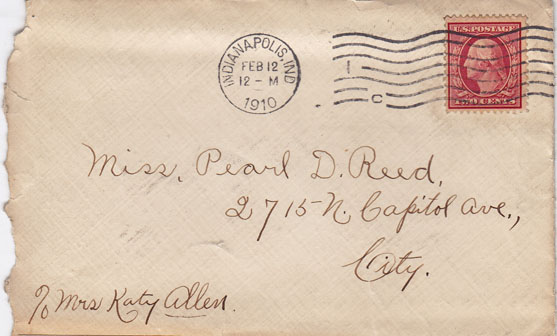 U.S. POSTAGE
INDIANAPOLIS, IND
FEB 12
12 - M
1910
1
C
Miss. Pearl D. Reed,
2715 N. Capitol Ave.,
City.
℅ Mrs Katy Allen.